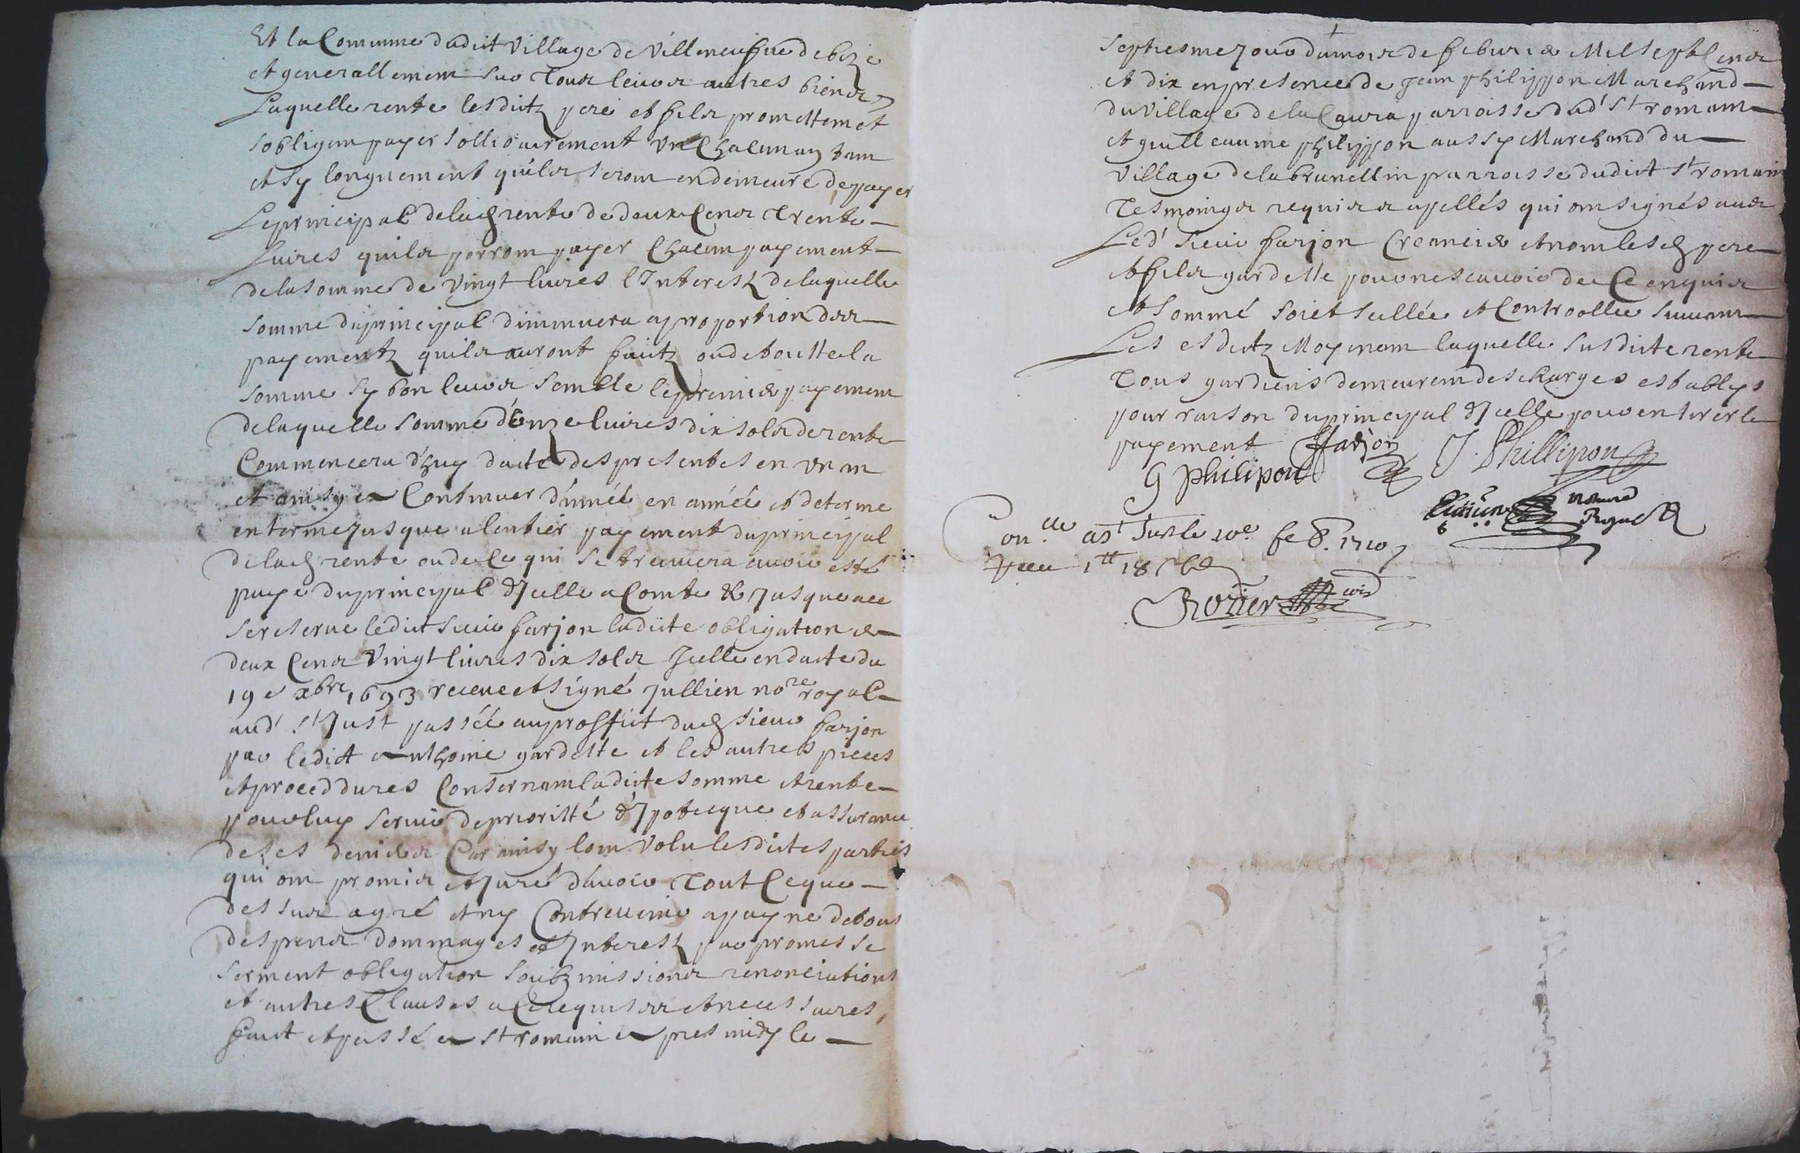 Et la Commune dudict village de Villeneufve
et generallement sur tous leurs autres biens
Laquelle rente lesditz pere et fils promettent et
sobligent payer sollidairement Un Chacun an
et sy longuement quils seront en demeure de payer
Le principal de lad rente de deux Cens Trente
Livres quils porront payer Chacun payement
de la somme de Vingt livres l'Interestz de laquelle
somme du principal diminuera a proportion des
payementz quils auront faitz ou de toutte la
somme sy bon leurs semble le premier payement
de laquelle somme d'Onze livres dix sols de rente
Commencera d'huy datte des presentes en un an
et ainsy a Continuer d'année en année et de terme
en terme jusques a lentier payement du principal
de lad rente ou de Ce qui se trouvera avoir esté
paye du principal d'Icelle a Comte & jusques a ce
se reserve ledict sieur farjon ladite obligation de
deux Cens Vingt livres dix sols Icelle en datte du
19e xbre 1693 receue et signé Jullien nore royal
aud St Just passée au proffict dud sieur farjon
par ledict anthoine gardette et les autres pieces
et proceddures Consernant ladicte somme et rente
pour luy servir de priorité d'Ypotecque et assurance
de ses deniers Car ainsy lont Volu lesdictes parties
qui ont promis et juré d'avoir Tout Ce que
dessus agré et ny Contrevenir a payne de tous
despens dommages et Interestz par promesse
serment obligation soubzmissions renonciations
et autres Clauses a Ce requises et necessaires,
fait et passé a St romain apres midy le
septiesme jour du mois de febvrier Mil sept Cens
et dix en presence de Jean philippon Marchand
du Village de la Caura parroisse dud St romain
et guilleaume philippon aussy Marchand du
Village de la brunellin parroisse dudict St romain
Tesmoings requis & apellés qui ont signés avec
Led sieur farjon Creancier et non lesd pere
et fils gardette pour ne scavoir de Ce enquis
et sommé soict scellée et Controollée suivant
Les esdictz Moyenant laquelle susdicte rente
Tous gardiens demeurent descharges establys
pour raison du principal d'Icelle pour en tirer le
payement Ffarjon J. Phillipon
G philipon
Jullien notaire Royal
Con.lle a St Just le 10e fe 8. 1710
Receu 1tt 18 s
Rozier